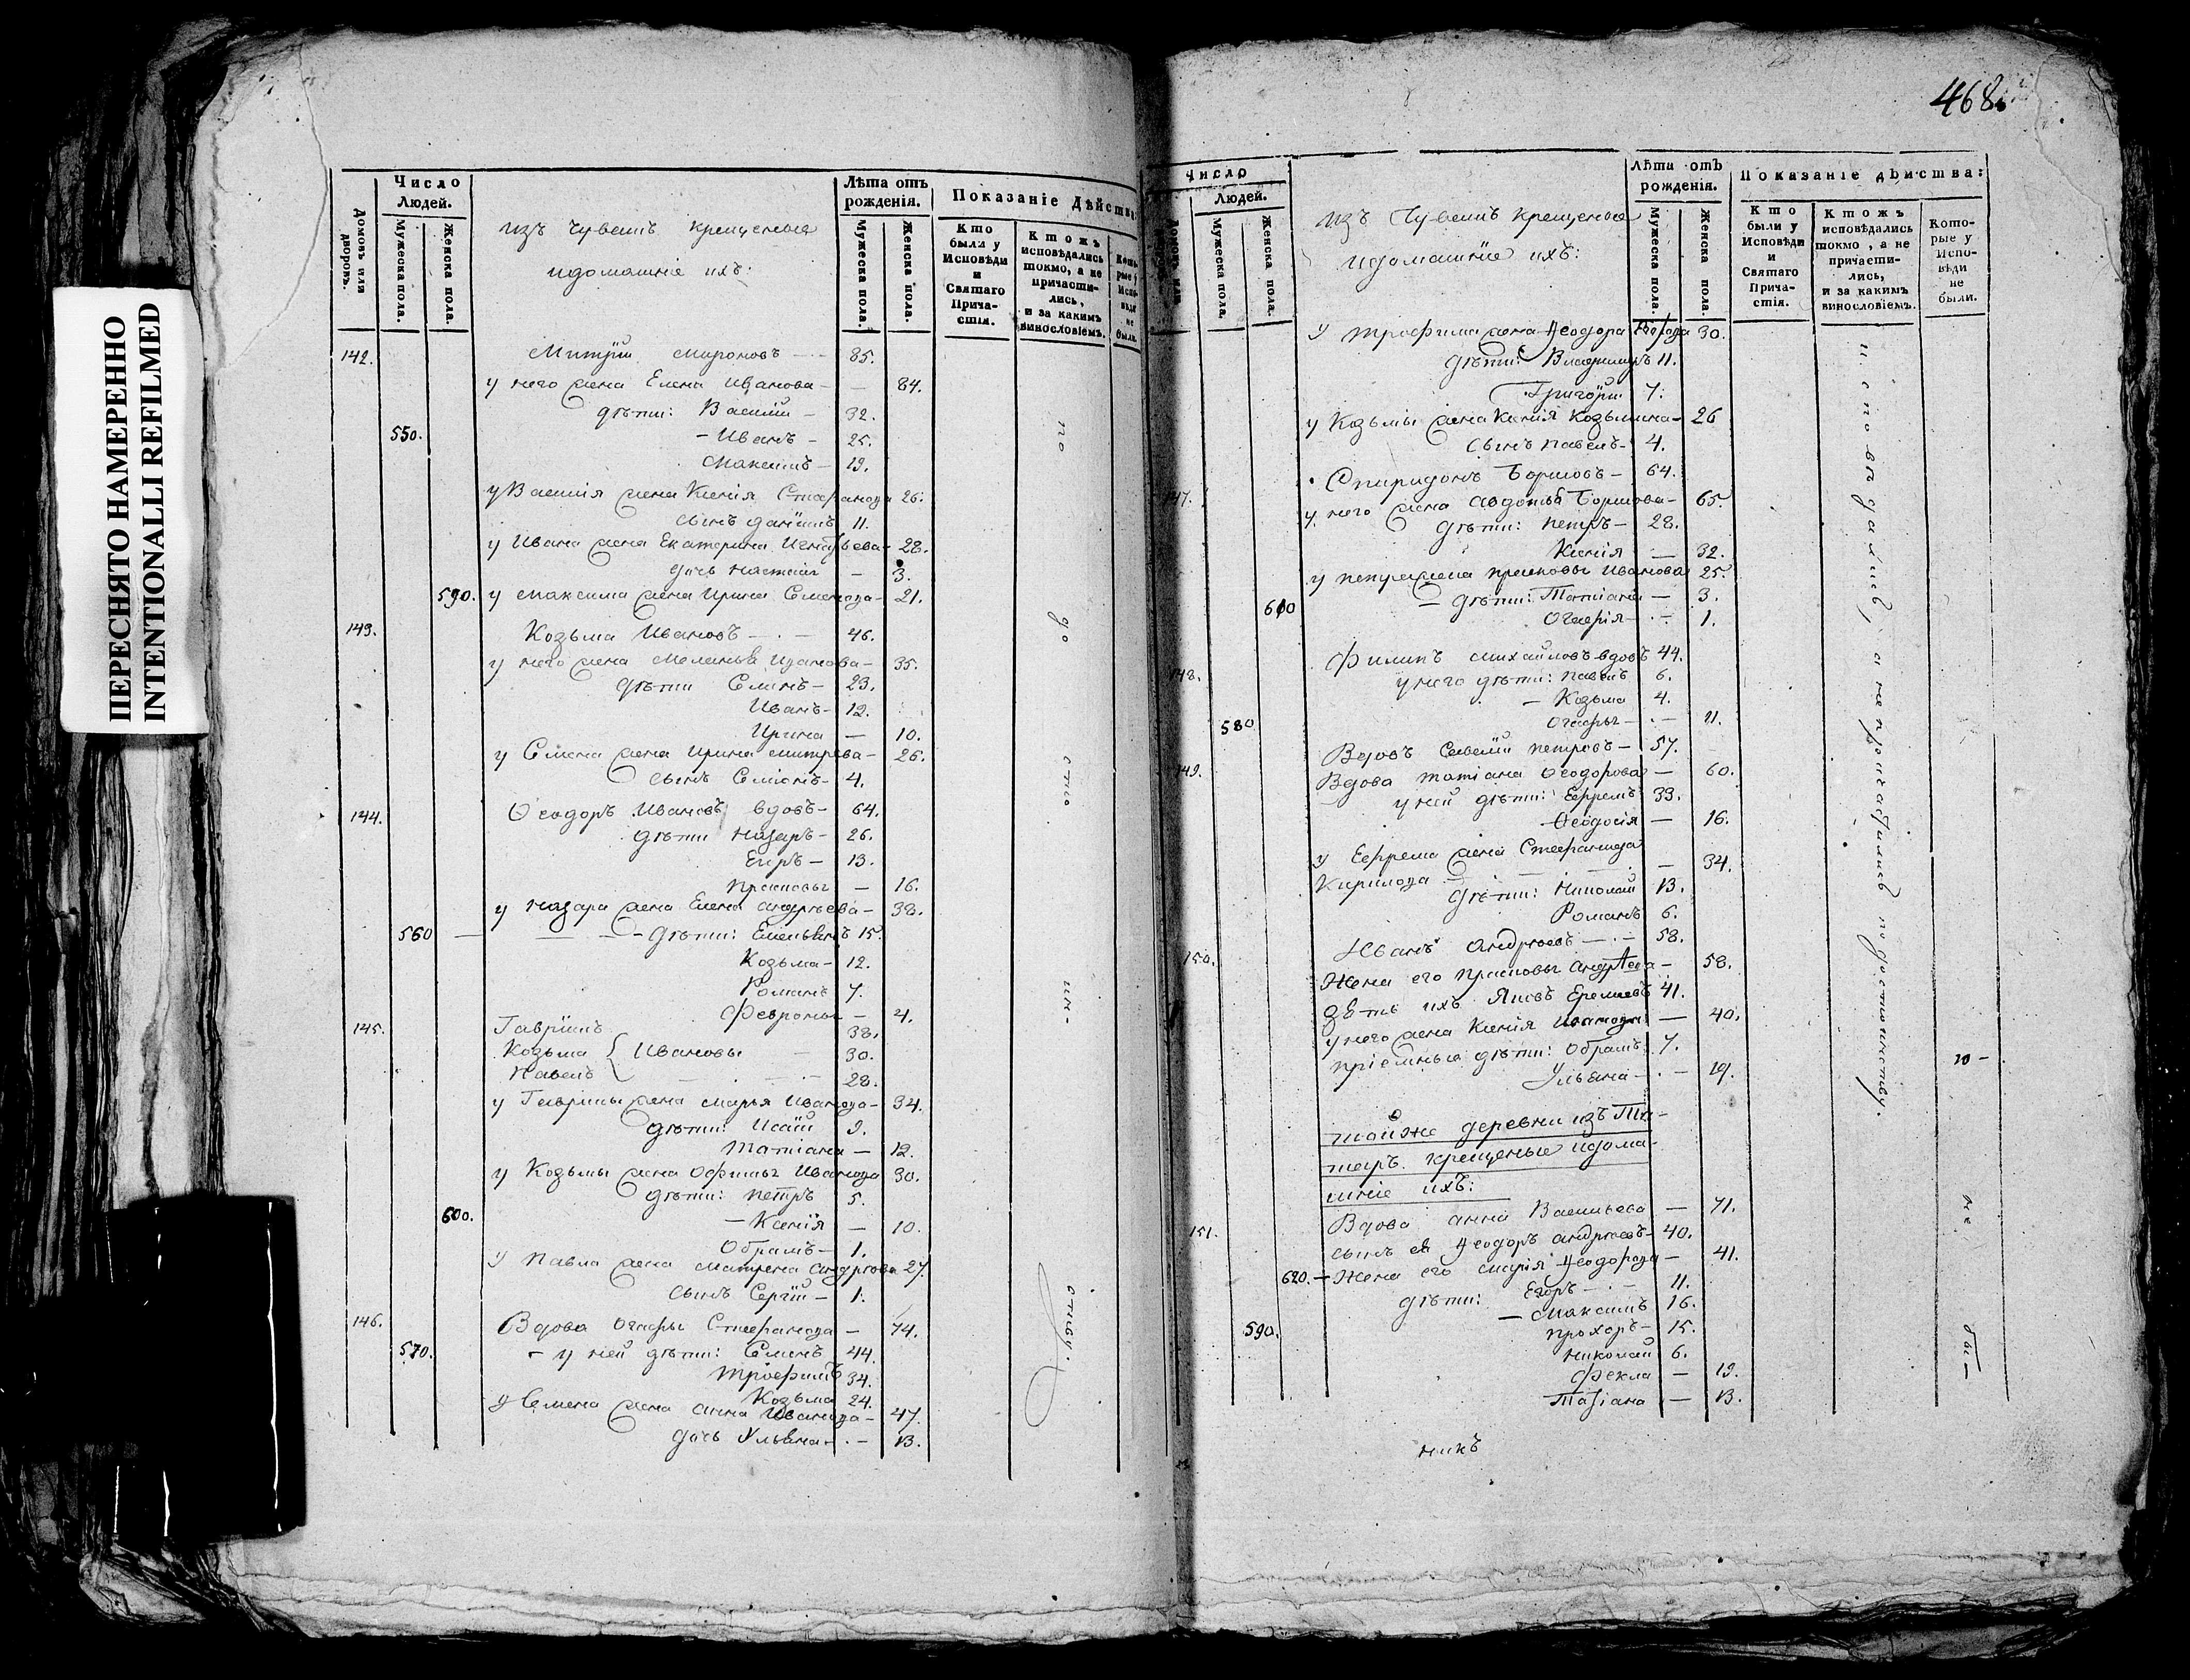 ПЕРЕСНЯТО НАМЕРЕННО
INTENTIONALLI REFILMED
Число Людей.
Домовъ или дворовъ.
Мужеска пола.
Женска пола.
изъ Чувашъ крещеныя
идомашніе ихъ:
Лѣта отъ рожденія.
Мужеска пола.
Женска пола.
Показаніе Дѣйств
Кто были у Исповѣди и Святаго Прича-стія.
Ктожъ исповѣдались токмо, а не причасти-лись, и за какимъ винословіемъ.
142. Митрій Мироновъ — 85.
у него жена Елена Иванова — 84.
дѣти: Василій — 32.
550. — Иванъ — 25.
Максимъ — 19.
у Василія жена Ксенія Стефанова 26.
сынъ Даніилъ 11.
у Ивана жена Екатерина Игнатьева — 28.
дочь Настасія — 3.
590. у Максима жена Ирина Семенова — 21.
143. Козьма Ивановъ — 46.
у него жена Меланья Иванова — 35.
дѣти Семенъ — 23.
Иванъ — 12.
Ирина — 10.
у Семена жена Ирина Митрева — 26.
сынъ Семіонъ — 4.
144. Ѳеодоръ Ивановъ вдовъ — 64.
дѣти Назаръ — 26.
Егоръ — 13.
Прасковья — 16.
у Назара жена Елена Андрѣева — 38.
560 — дѣти: Емельянъ 15.
Козьма — 12.
Романъ 7.
Февронья — 4.
145. Гавріилъ 38.
Козьма { Ивановы — 30.
Павелъ 28.
у Гаврилы жена Марья Иванова — 34.
дѣти: Исай 9.
Татіана — 12.
у Козьмы жена Офимья Иванова 30.
дѣти: Петръ 5.
600. — Ксенія — 10.
Обрамъ — 1.
у Павла жена Матрена Андрѣева 27.
сынъ Сергій — 1.
146. Вдова Огафья Стефанова — 74.
570. — у ней дѣти: Семенъ 44.
Трофимъ 34.
Козьма 24.
у Семена жена Анна Иванова — 47.
дочь Ульяна — 13.
по до сто ин- ству.
468.
Число Людей.
Мужеска пола.
Женска пола.
изъ Чувашъ крещеныя
идомашніе ихъ:
Лѣта отъ рожденія.
Мужеска пола.
Женска пола.
Показаніе дѣйства:
Кто были у Исповѣди и Святаго Прича-стія.
Ктожъ исповѣдались токмо, а не причасти-лись, и за какимъ винословіемъ.
Кото-рые у Испо-вѣди не были.
у Трофима жена Ѳеодора 30.
дѣти: Владимиръ 11.
Григорій 7.
у Козьмы жена Ксенія Козьмина — 26
сынъ Павелъ — 4.
147. Спиридонъ Борисовъ — 64.
у него жена Авдотья Борисова — 65.
дѣти: Петръ — 28.
Ксенія — 32.
у Петра жена Прасковья Иванова 25.
— дѣти: Татіана — 3.
610 Огафія — 1.
148. Филипъ Михайловъ вдовъ 44.
у него дѣти: Павелъ 6.
— Козьма 4.
580 Огафья — 11.
Вдовъ Савелій Петровъ — 57.
149. Вдова Татіана Ѳеодорова — 60.
у ней дѣти: Ефремъ 33.
Ѳеодосія — 16.
у Ефрема жена Стефанида
Кирилова — 34.
дѣти: Николай 13.
Романъ 6.
150. Иванъ Андрѣевъ — 58.
Жена его Прасковья Андрѣева — 58.
зять ихъ Яковъ Еремеевъ 41.
у него жена Ксенія Иванова — 40.
пріемныя дѣти: Обрамъ 7.
Ульяна — 19.
тойже деревни изъ Та-
таръ крещеные идома-
шніе ихъ:
151. Вдова Анна Васильева — 71.
сынъ ея Ѳеодоръ Андрѣевъ — 40.
620. — Жена его Марія Ѳеодорова — 41.
дѣти: Егоръ — 11.
— Максимъ 16.
590. Прохоръ — 15.
Николай 6.
Фекла — 19.
Татіана — 13.
исповѣдались, а не причастились по достоинству.
не бы —
никъ